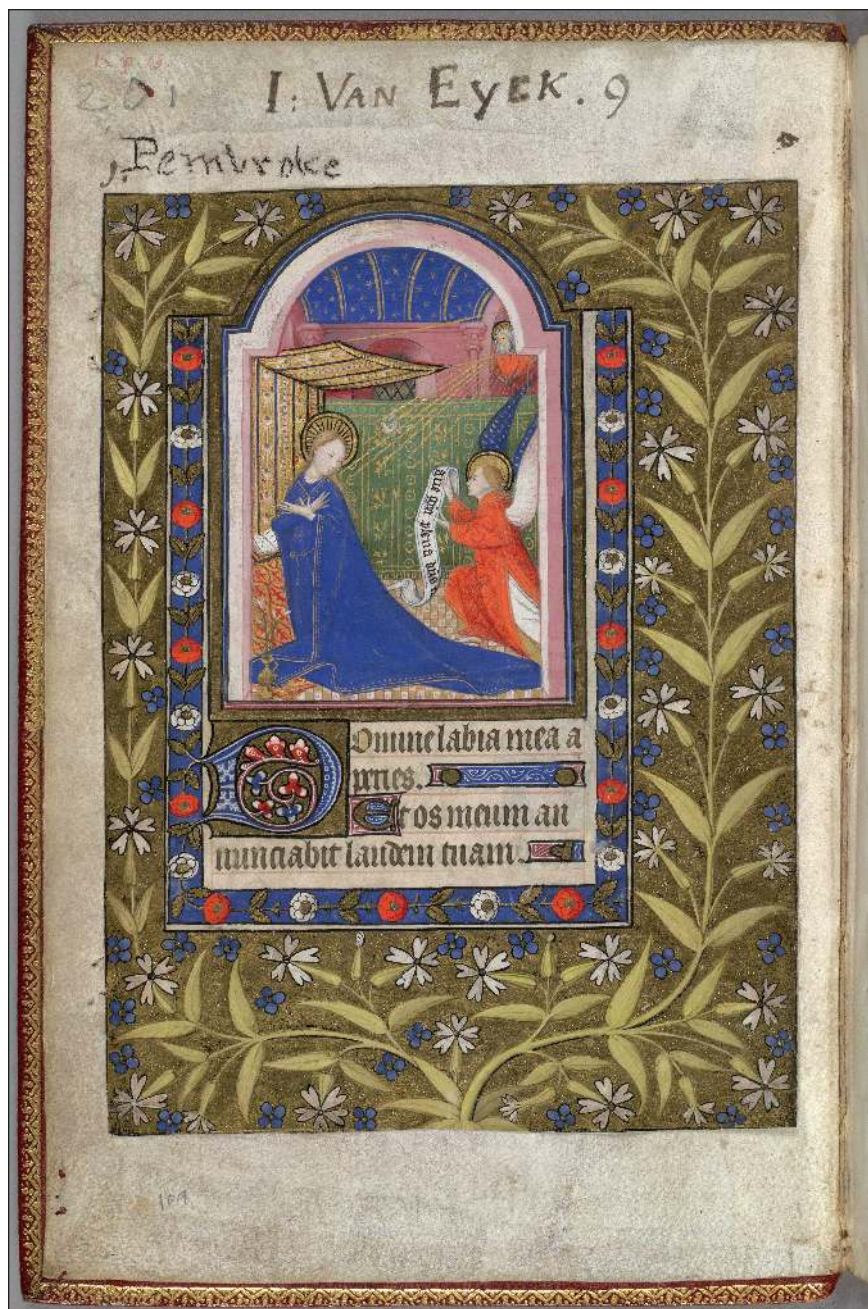 201
I: VAN EYCK. 9
Pembroke
aue gr̄a plena dn̄s
Domine labia mea a
peries.
Et os meum an
nunciabit laudem tuam.